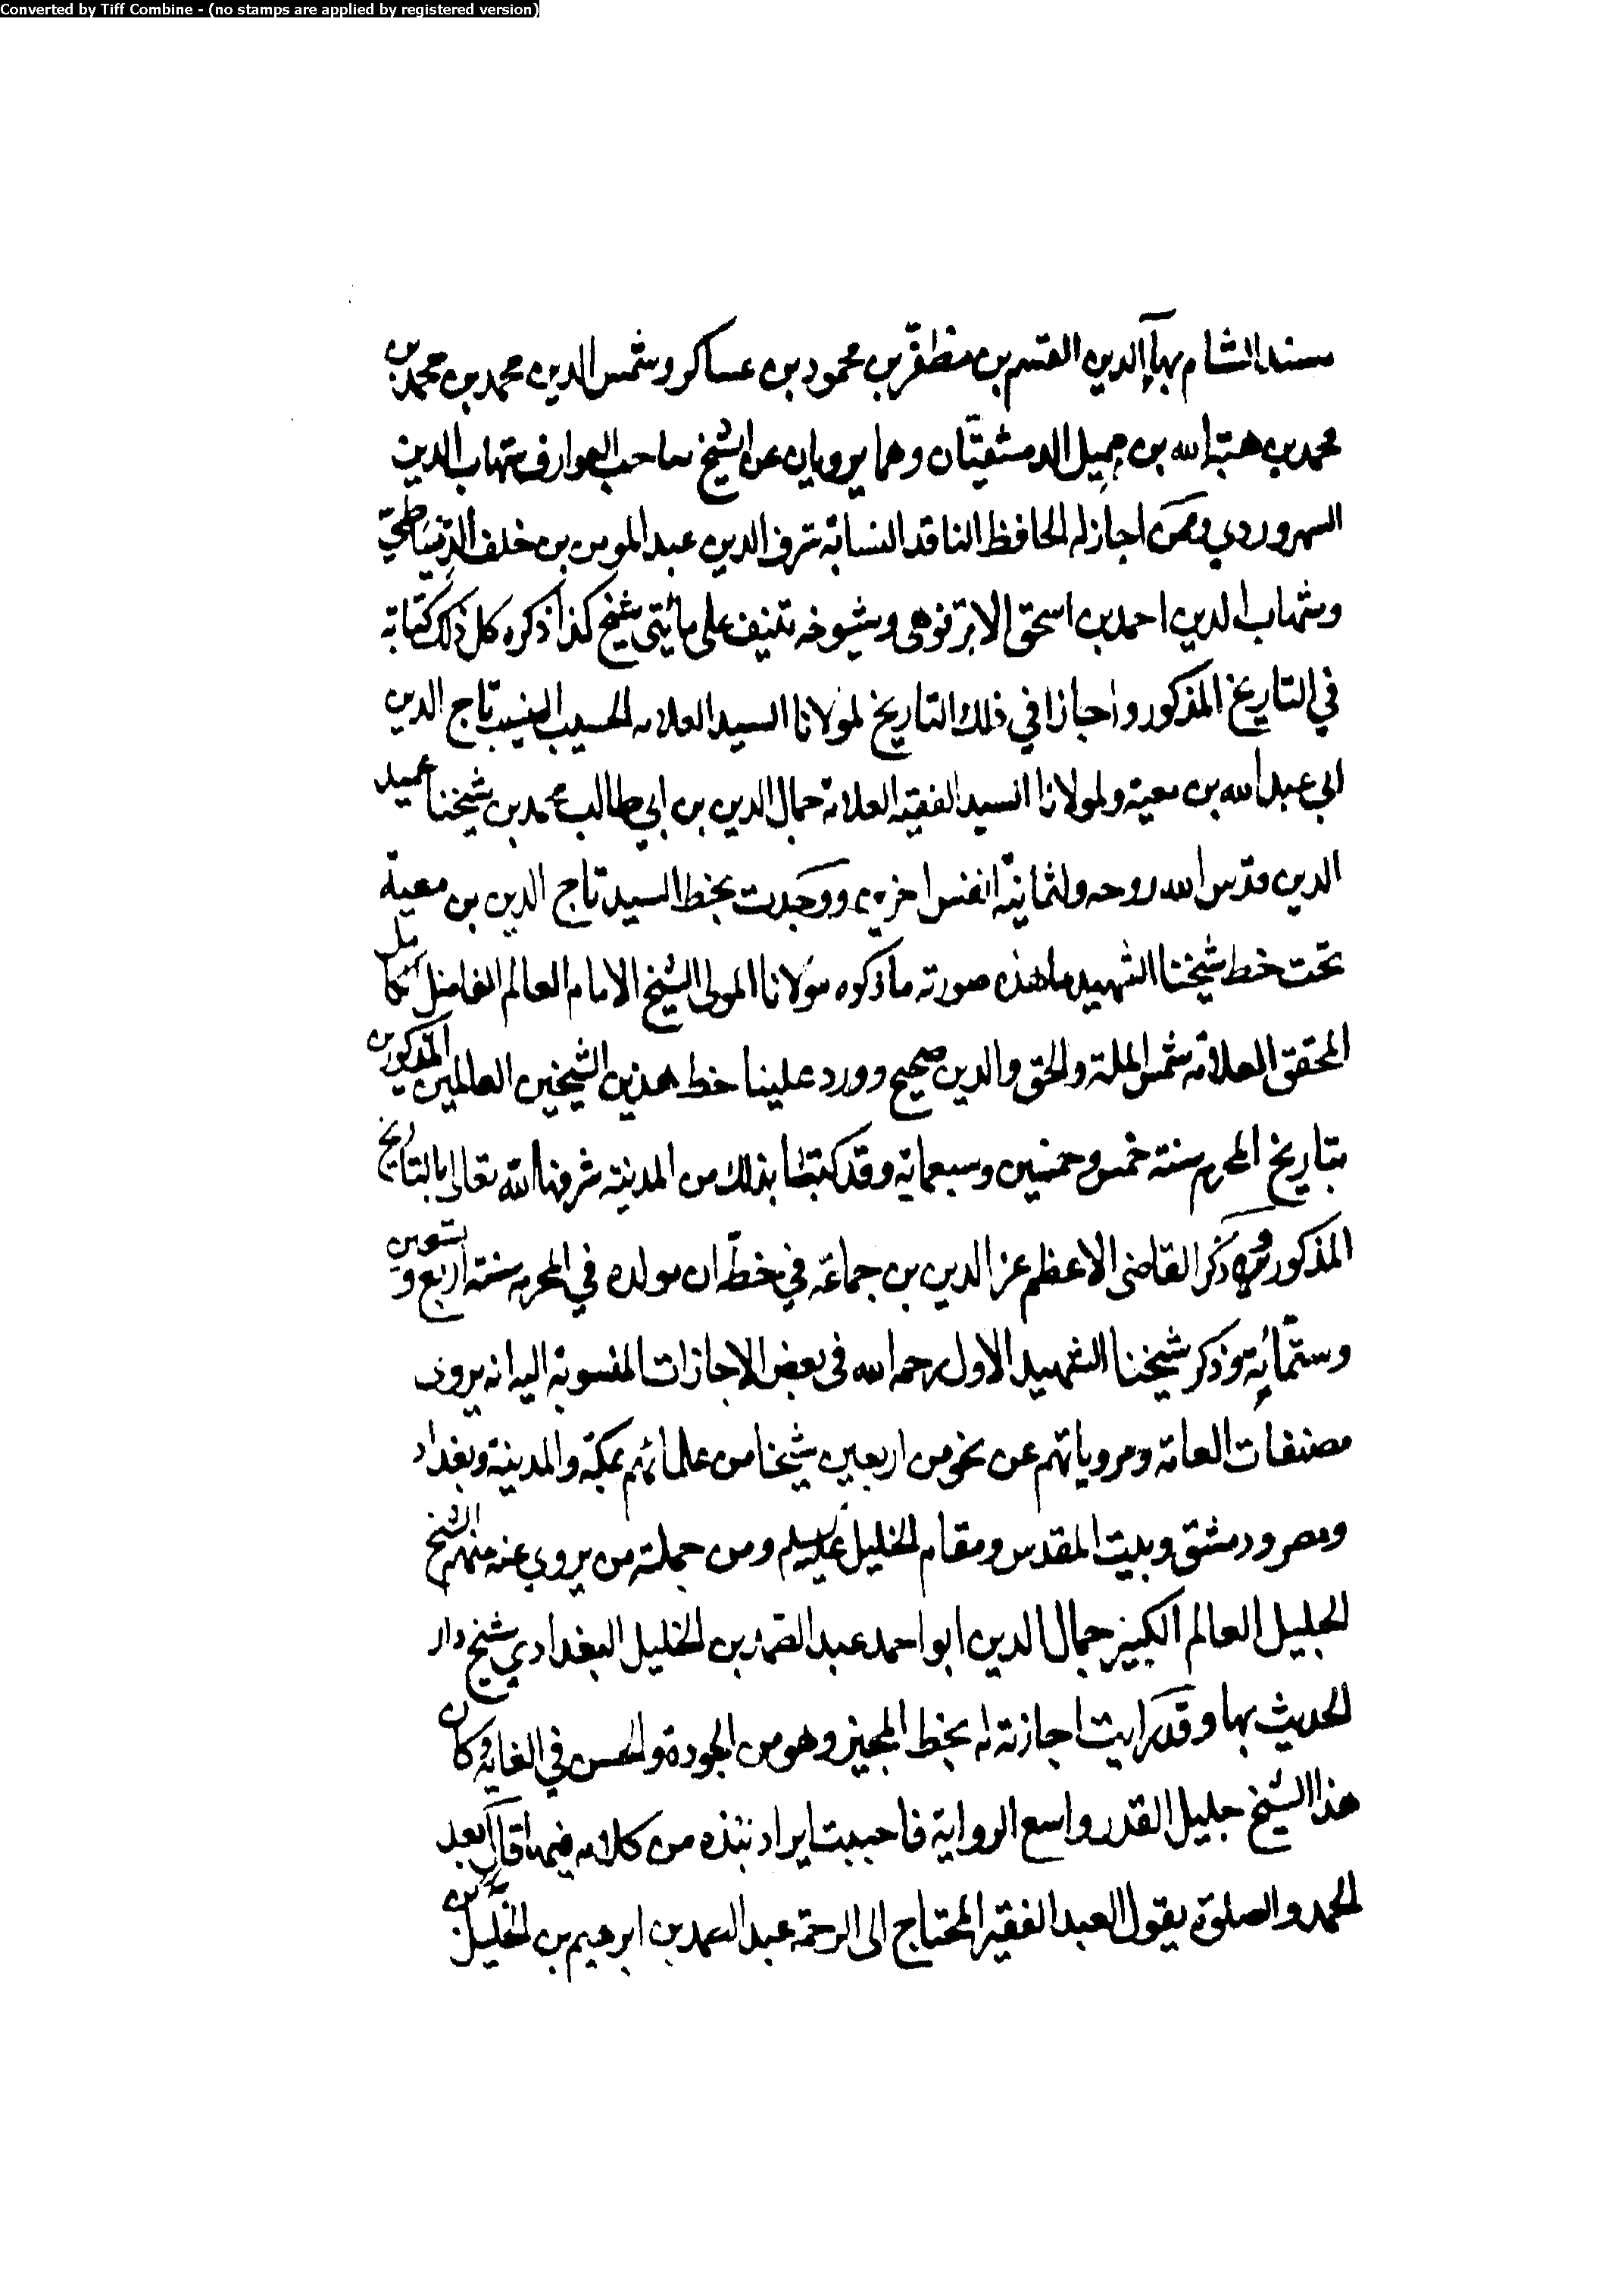 Converted by Tiff Combine - (no stamps are applied by registered version)
مسند الشام بهآء الدين القسم بن مظفّر بن محمود بن عساكر وشمس الدين محمد بن محمد بن
محمد بن هبة الله بن جميل الدمشقيّان وهما يرويان عن الشيخ صاحب العوارف شهاب الدين
السهروردي وممن اجاز له الحافظ الناقد النسابة شرف الدين عبد المومن بن خلف الدمياطيّ
وشهاب الدين احمد بن اسحق الابرقوهى وشيوخه تنيف على مائتى شيخ كذا ذكره كل ذلك كتابة
في التاريخ المذكور واجازا في ذلك التاريخ لمولانا السيد العلامه الحسيب النسيب تاج الدين
ابي عبد الله بن معية ولمولانا السيد الفقيه العلامة جمال الدين بن ابي طالب محمد بن شيخنا عميد
الدين قدّس الله روحه ولثمانية انفس اخرين ووجدت بخط السيد تاج الدين بن معية
تحت خط شيخنا الشهيد ما هذه صورته ما ذكره مولانا المولى الشيخ الامام العالم الفاضل الكامل
المحقق العلامة شمس الملة والحق والدين صحيح وورد علينا خط هذين الشيخين العالمين المذكورين
بتاريخ المحرم سنة خمس وخمسين وسبعماية وقد كتبتا بذلك من المدينة شرفها الله تعالى بالتاريخ
المذكور وذكر القاضى الاعظم عز الدين بن جماعة في خطّه ان مولده في المحرم سنة اربع وتسعين
وستمّائة وذكر شيخنا الشهيد الاول رحمه الله فى بعض الاجازات المنسوبة اليه انه يروى
مصنفات العامة ومروياتهم عن نحو من اربعين شيخا من علمائهم بمكة والمدينة وبغداد
ومصر ودمشق وبيت المقدس ومقام الخليل عليه السلم ومن جملة من يروي عنه منهم الشيخ
الجليل العالم الكبير جمال الدين ابو احمد عبد الصمد بن الخليل البغدادي شيخ دار
الحديث بها وقد رايت اجازته له بخط المجيز وهو من الجودة والحسن في الغاية وكان
هذا الشيخ جليل القدر واسع الرواية فاحببت ايراد نبذه من كلامه فيها قال بعد
الحمد والصلوة يقول العبد الفقير المحتاج الى الرحمة عبد الصمد بن ابرهيم بن الخليل بن